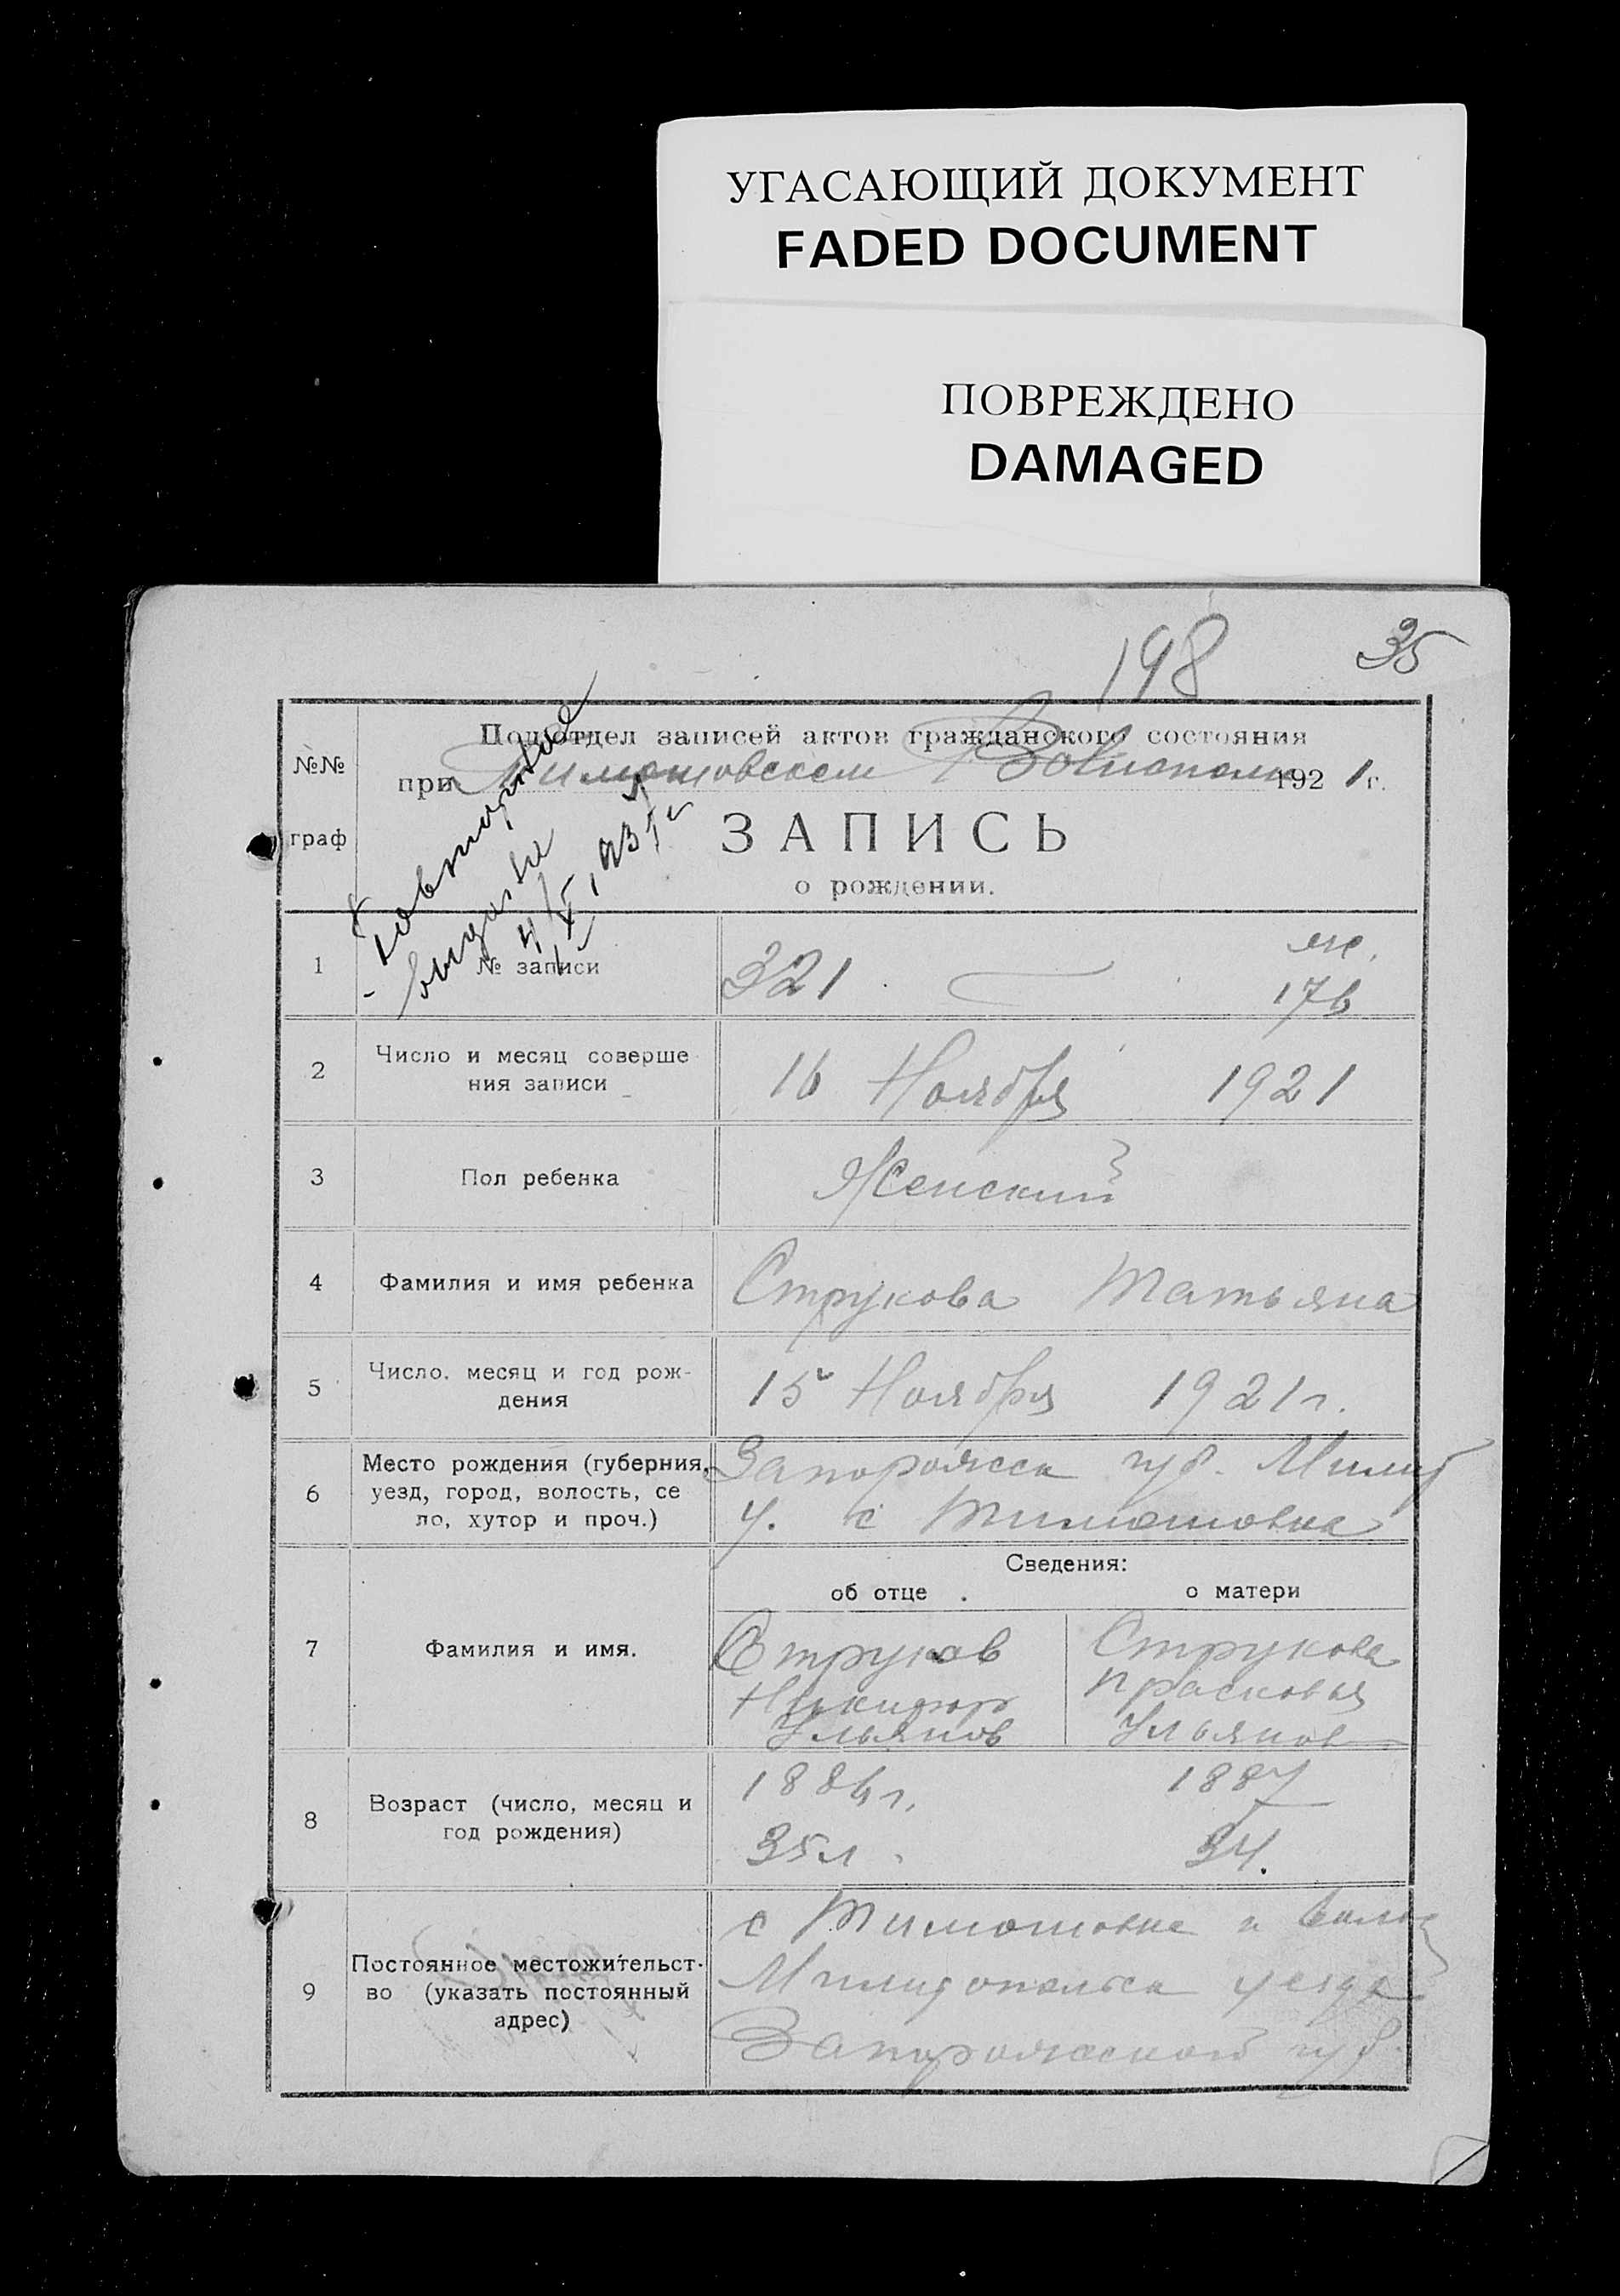 УГАСАЮЩИЙ ДОКУМЕНТ
FADED DOCUMENT
ПОВРЕЖДЕНО
DAMAGED
198 35
№№ граф
Подотдел записей актов гражданского состояния
при Тимошовском 1921 г.
ЗАПИСЬ
о рождении.
Повторное
выдано
1 № записи 321 же.
176
2 Число и месяц соверше
ния записи 16 Ноября 1921
3 Пол ребенка Женский
4 Фамилия и имя ребенка Струкова Татьяна
5 Число, месяц и год рож-
дения 15 Ноября 1921 г.
6 Место рождения (губерния, Запорожск губ. Мелит
уезд, город, волость, се у. с Тимошовка
ло, хутор и проч.)
Сведения:
об отце о матери
7 Фамилия и имя. Струков Струкова
Никифор Прасковья
Ульянов Ульянов
8 Возраст (число, месяц и 1886 г. 1887
год рождения) 35 л. 34.
9 Постоянное местожительст- с Тимошовке и волос
во (указать постоянный Мелитопольск уезда
адрес) Запорожской губ.